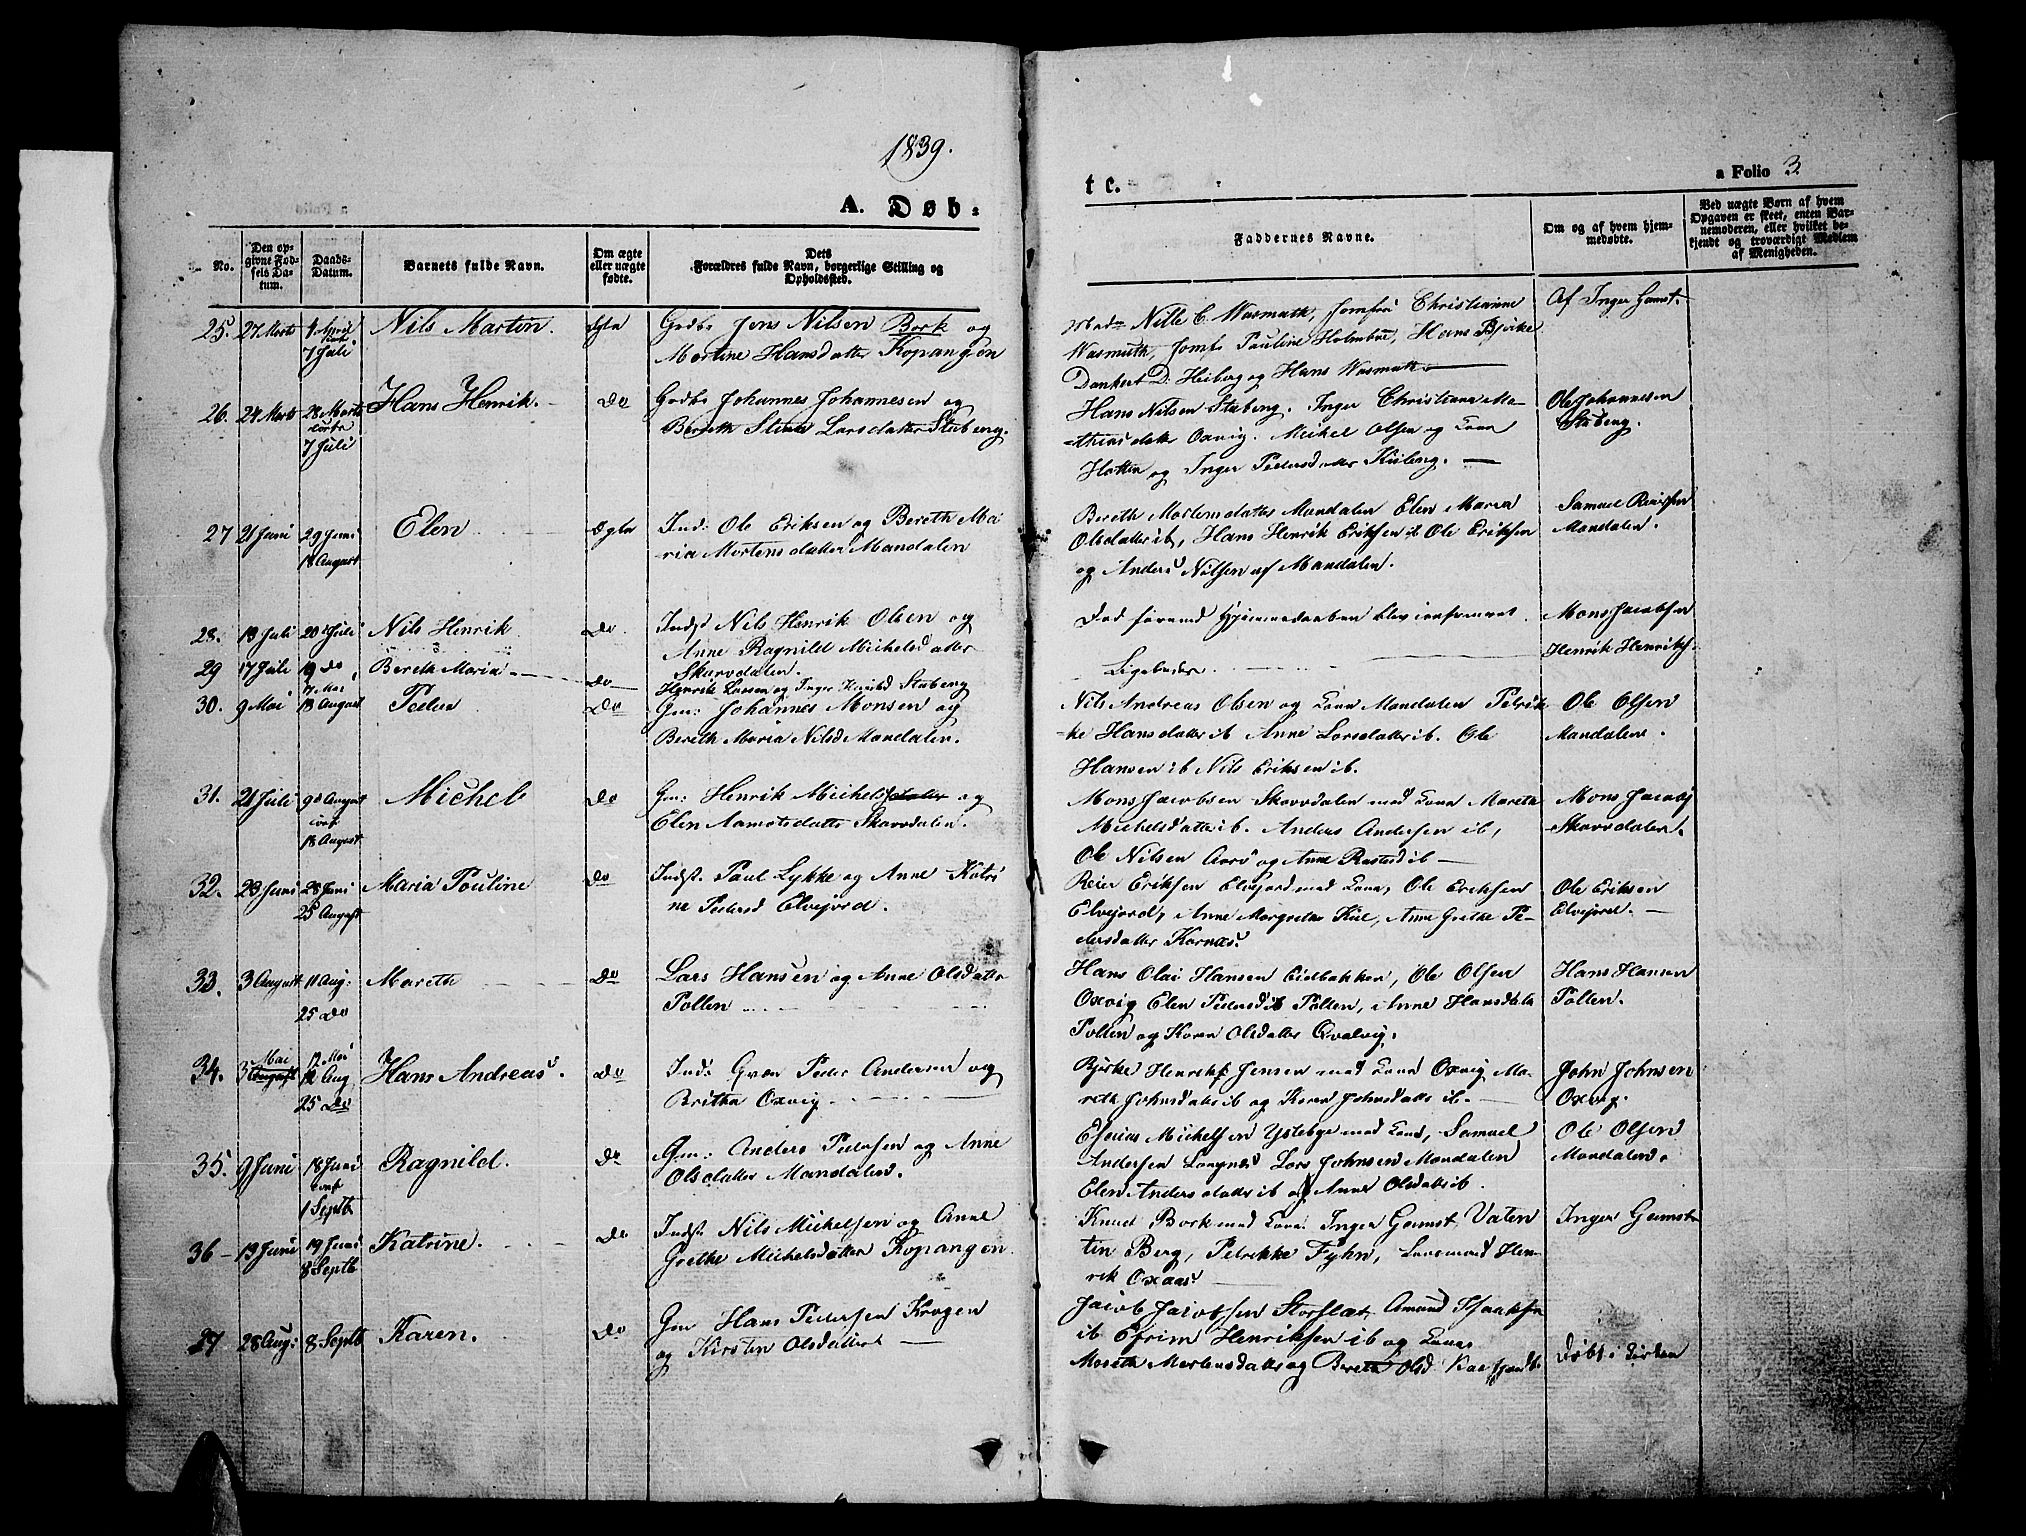 1839.
A. Døb=
No.
Den op-
givne Fød-
sels Da-
tum.
Daabs-
Datum.
Barnets fulde Navn.
Om ægte
eller uægte
fødte.
Dets
Forældres fulde Navn, borgerlige Stilling og
Opholdssted.
25. 27 Marts 1 April 7 Juli Nils Martin. Ægte Gdbr Jens Nilsen Bork og
Martine Hansdatter Kopangen
26. 24 Marts 28 Marts 7 Juli Hans Henrik. Do Gdbr Johannes Johannesen og
Bereth Stine Larsdatter Stubeng.
27 21 Juni 29 Juni 18 August Elen Ægte Ind: Ole Eriksen og Bereth Ma
ria Mortensdatter Mandalen
28. 19 Juli 20 Juli Nils Henrik Do. Indst Nils Henrik Olsen og
Anne Ragnild Michelsdatter
Skarvdalen.
29 17 Juli 19 do Bereth Maria Do Henrik Larsen og Inger Stubeng
30. 9 Mai 7 Mai 18 August Peder Do Gm: Johannes Monsen og
Bereth Maria Nilsd Mandalen.
31. 21 Juli 9d August conf 18 August Michel Do Gm: Henrik Michels og
Elen Aamotsdatter Skarvdalen.
32. 23 Juni 28 Juni 25 August Maria Pouline Do Indst. Paul Lykke og Anne Katri
ne Pedersd Elvejord.
33. 3 August 11 Aug: 25 Do Mareth Do Lars Hansen og Anne Olsdatter
Pollen
34. 3 Mai August 12 Mai 12 Aug 25 Do Hans Andreas. Do Ind: Qvæn Peder Andersen og
Britha Oxvig
35. 9 Juni 18 Juni conf 1 Septb Ragnild. Do Gm: Anders Pedersen og Anne
Olsdatter Mandalen.
36 13 Juni 19 Juni 8 Septb Katrine. Do Indst. Nils Michelsen og Anne
Grethe Michelsdatter Kopangen.
37 28 Aug: 8 Septb Karen. Do Gm Hans Pedersen Krogen
og Kirsten Olsdatter
t e.
a Folio 3
Faddernes Navne.
Om og af hvem hjem-
medøbte.
Ved uægte Børn af hvem
Opgaven er skeet, enten Bar-
nemoderen, eller hvilket be-
kjendt og troværdigt Medlem
af Menigheden.
Mad. Nille C. Wasmuth, Jomfru Christianne Af Inger Gamst.
Wasmuth, Jomf. Pauline Holmboe, Hans Bjerke
Dankert D. Heiberg og Hans Wasmuth.
Hans Nilsen Stubeng. Inger Christianna Ma- Ole Johannesen
thiasdatter Oxvig. Mikel Olsen og Kone Stubeng.
Hatten og Inger Pedersdatter Kileng.
Bereth Mortensdatter Mandalen Elen Maria Samuel
Olsdatter ib, Hans Henrik Eriksen ib Ole Eriksen Mandalen.
og Anders Nilsen af Mandalen.
Død førend Hjemmedaaben blev confirmeret. Mons Jacobsen
Ligeledes. Henrik Henriks.
Nils Andreas Olsen og Kone Mandalen Petrik Ole Olsen
ke Hansdatter ib Anne Larsdatter ib. Ole Mandalen.
Hansen ib Nils Eriksen ib.
Mons Jacobsen Skarvdalen med Kone Mareth Mons Jacobs
Michelsdatter ib. Anders Andersen ib, Skarvdalen.
Ole Nilsen og Anne ib
Reier Eriksen Elvejord med Kone, Ole Eriksen Ole Eriksen
Elvejord, Anne Margrethe Kiil, Anne Grethe Pe- Elvejord.
dersdatter Kornæs.
Hans Olai Hansen Eidbakken, Ole Olsen Hans Hansen
Oxvig Elen Pedersd ib Pollen, Anne Hansdatter Pollen.
Pollen og Karen Olsdatter Qvalvig.
Bjerke Henrik Jensen med Kone Oxvig Ma- John Johnsen
reth Johnsdatter ib og Karen Johnsdatter ib. Oxvig.
Esaias Michelsen Ystebye med Kone, Samuel Ole Olsen
Andersen Langnes Lars Johnsen Mandalen Mandalen.
Elen Andersdatter ib og Anne Olsdatter ib.
Knud Bork med Kone Inger Gamst, Valen Inger Gamst
tin Berg, Petrikke Fyhn, Hen-
rik Oxaas.
Jacob Jacobsen Storslæt Amund Isaaksen
ib Efrim Henriksen ib og Kones
Mareth Mortensdatter og Bereth Olsd Døbt i Kirken